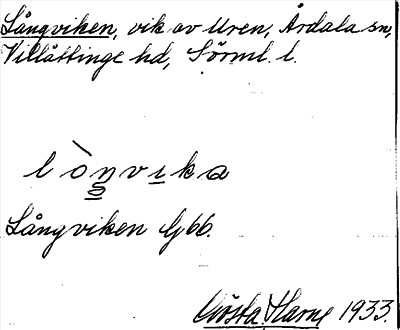 Långviken, vik av Uren, Årdala sn,
Villåttinge hd, Sörml. l.
lòŋvika
Långviken Gj 66.
Gösta Harne 1933.